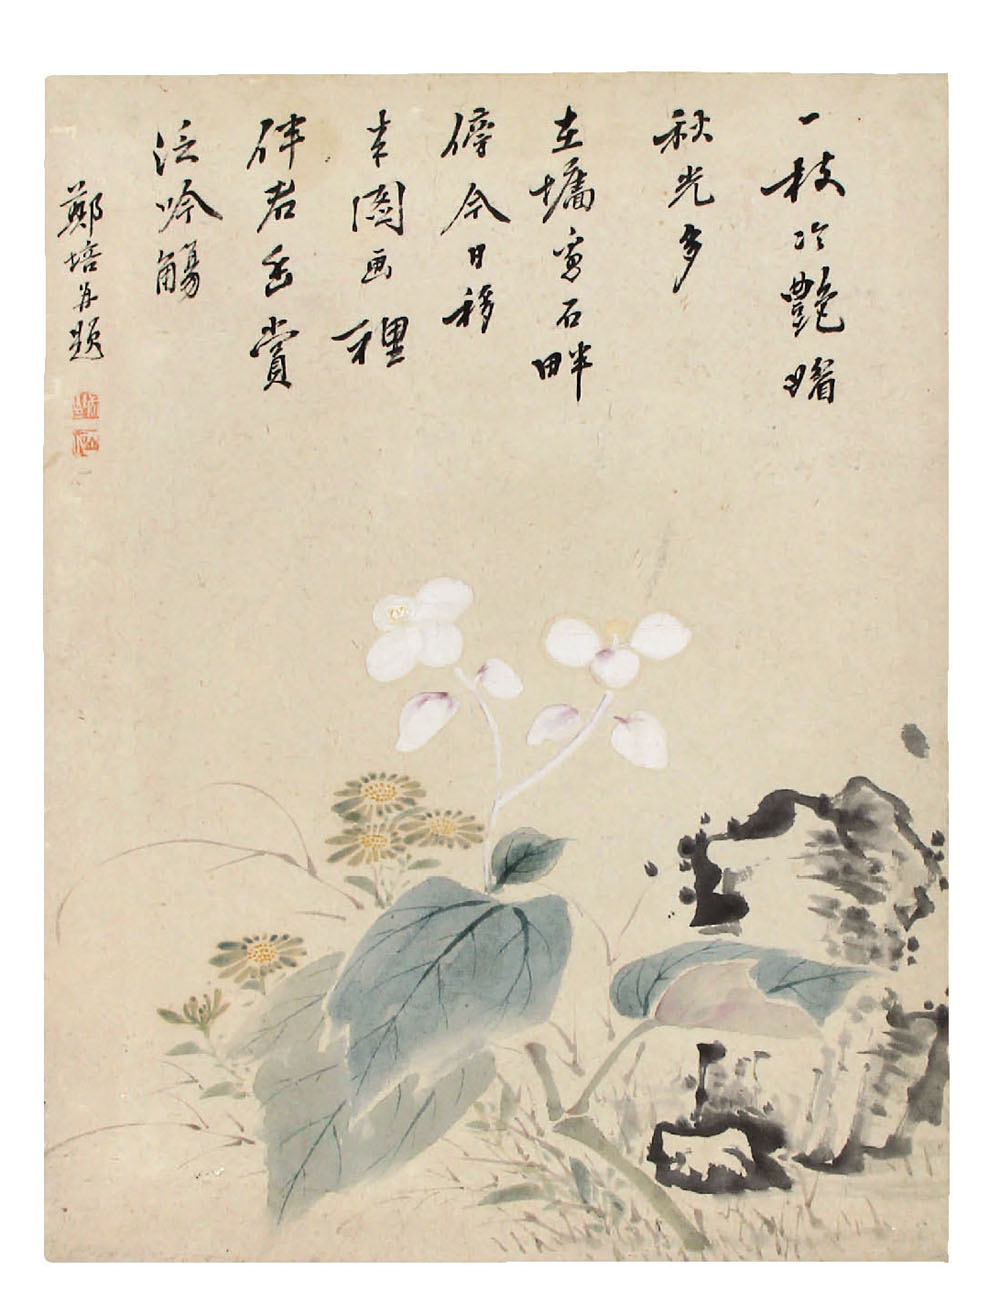 一枝冷艷曙
秋光多
在墻石畔
傍今日移
來圖画裡
伴君幽賞
泛吟觴
鄭培并題